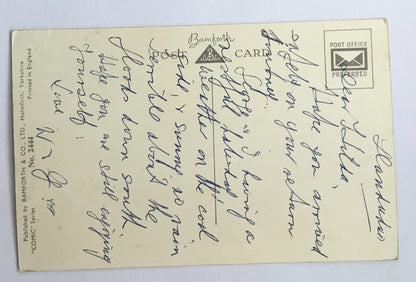 Bamforth
POST CARD
POST OFFICE
PREFERRED
Published by BAMFORTH & CO., LTD., Holmfirth, Yorkshire
"COMIC" Series No. 2444 Printed in England
Llandudno
Dear Hilda,
Hope you arrived
safely on your return
journey.
& I having a
restful holiday
weather on the cool
side, & sunny no rain
terrible about the
floods down south.
Hope you are still enjoying
yourself.
Love